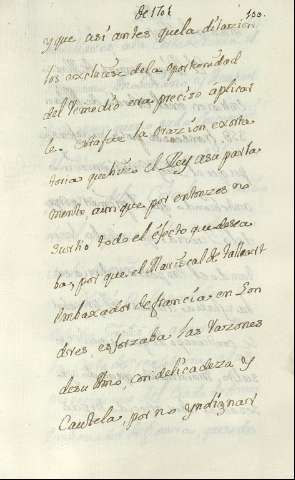 de 1701
130.
y que así antes que la dilazion
los excluiese de la oportunidad
del Remedio era preciso aplicar
le. esta fue la orazion exorta
toria que hizo el Rey a su parla
mento, aunque por entonzes no
surtio todo el efecto que desea
ba, por que el Mariscal de Tallard
embaxador de francia en Lon
dres, esforzaba las razones
de su Amo, con delicadeza y
Cautela, por no yndignar